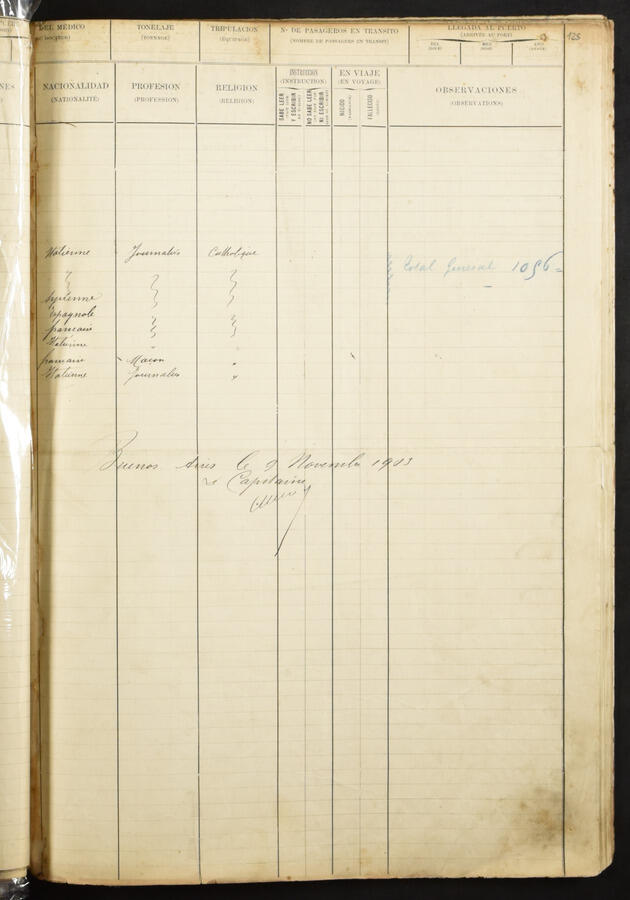 DEL MÉDICO TONELAJE TRIPULACION Nº DE PASAGEROS EN TRÁNSITO LLEGADA AL PUERTO 125
(TONNAGE) (EQUIPAGE) (NOMBRE DE PASSAGERS EN TRANSIT) (ARRIVÉE AU PORT)
DIA MES AÑO
NES NACIONALIDAD PROFESION RELIGION INSTRUCCION EN VIAJE OBSERVACIONES
(NATIONALITÉ) (PROFESSION) (RELIGION) (INSTRUCTION) (EN VOYAGE) (OBSERVATIONS)
SABE LEER Y ESCRIBIR
NO SABE LEER NI ESCRIBIR
NACIDO
FALLECIDO
Italienne Journalier Catholique
Total General 1056
Syrienne
Espagnole
française
Italienne "
française Maçon "
Italienne Journalier "
Buenos Aires le 9 Novembre 1903
Le Capitaine